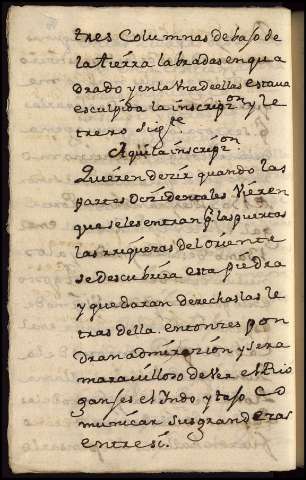 tres Columnas debaso de
la tierra labradas en qua
drado y en la Vna de ellas estava
esculpida la inscripz.on y le
trero sig.te
Aqui la inscripz.on
Quieren dezir quando las
partes Occidentales Vieren
que se les entran p.r las puertas
las rriquezas del oriente
se descubrira esta piedra
y quedaran derechas las le
tras della. entonzes pon
dran admirazion y sera
maravilloso de Ver el Rio
ganses el Yndo y taso Co
municar sus grandezas
entre si.